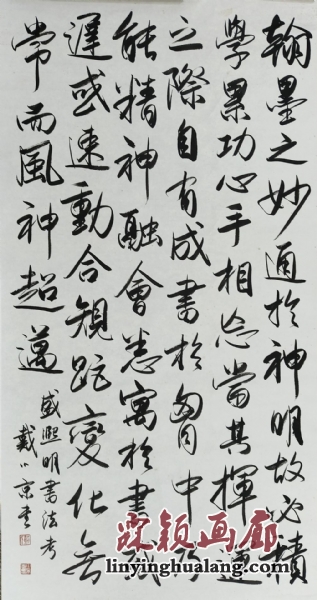 翰墨之妙通於神明故必積
學累功心手相忘當其揮運
之際自有成書於胷中乃
能精神融會悉寓於書或
遲或速動合規距變化無
常而風神超邁
盛熙明書法考
戴小京書
霖颖画廊
linyinghualang.com